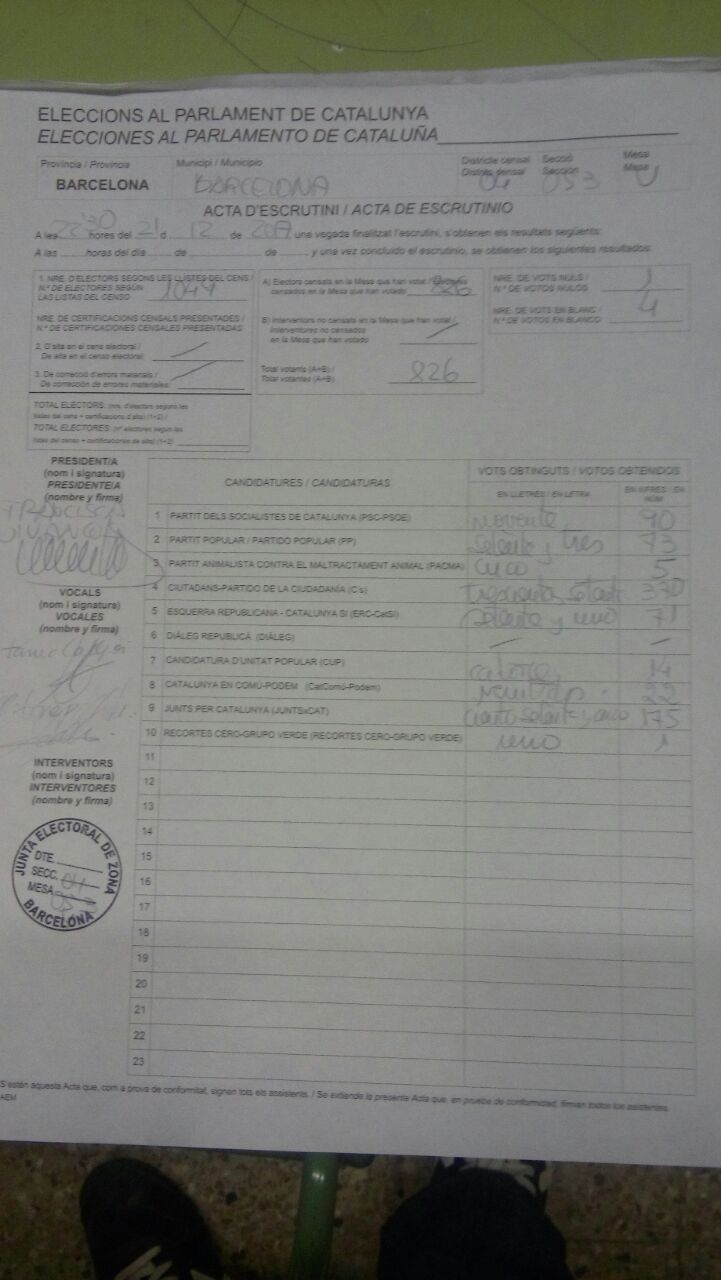 ELECCIONS AL PARLAMENT DE CATALUNYA
ELECCIONES AL PARLAMENTO DE CATALUÑA
Provincia / Provincia
Municipi / Municipio
Districte censal Secció Mesa
Distrito censal Sección Mesa
BARCELONA BARCELONA 04 053 U
ACTA D'ESCRUTINI / ACTA DE ESCRUTINIO
A les 22'20 hores del 21 d 12 de 2017 una vegada finalitzat l'escrutini, s'obtenen els resultats següents:
A las horas del día de de y una vez concluido el escrutinio, se obtienen los siguientes resultados:
1. NRE. D'ELECTORS SEGONS LES LLISTES DEL CENS /
N.º DE ELECTORES SEGÚN
LAS LISTAS DEL CENSO 1044
NRE. DE CERTIFICACIONS CENSALS PRESENTADES /
N.º DE CERTIFICACIONES CENSALES PRESENTADAS
2. D'alta en el cens electoral /
De alta en el censo electoral:
3. De correcció d'errors materials /
De corrección de errores materiales:
TOTAL ELECTORS: (nre. d'electors segons les
llistes del cens + certificacions d'alta) (1+2) /
TOTAL ELECTORES: (nº electores según las
listas del censo + certificaciones de alta) (1+2)
A) Electors censats en la Mesa que han votat / Electores
censados en la Mesa que han votado 826
B) Interventors no censats en la Mesa que han votat /
Interventores no censados
en la Mesa que han votado
Total votants (A+B) /
Total votantes (A+B) 826
NRE. DE VOTS NULS /
N.º DE VOTOS NULOS 1
NRE. DE VOTS EN BLANC /
N.º DE VOTOS EN BLANCO 4
PRESIDENT/A
(nom i signatura)
PRESIDENTE/A
(nombre y firma)
VOCALS
(nom i signatura)
VOCALES
(nombre y firma)
INTERVENTORS
(nom i signatura)
INTERVENTORES
(nombre y firma)
JUNTA ELECTORAL DE ZONA
DTE.
SECC. 04
MESA
BARCELONA
CANDIDATURES / CANDIDATURAS
VOTS OBTINGUTS / VOTOS OBTENIDOS
EN LLETRES / EN LETRA
EN XIFRES / EN NÚM
1 PARTIT DELS SOCIALISTES DE CATALUNYA (PSC-PSOE) noventa 90
2 PARTIT POPULAR / PARTIDO POPULAR (PP) setenta y tres 73
3 PARTIT ANIMALISTA CONTRA EL MALTRACTAMENT ANIMAL (PACMA) cinco 5
4 CIUTADANS-PARTIDO DE LA CIUDADANÍA (C's) trescientos setenta 370
5 ESQUERRA REPUBLICANA - CATALUNYA SÍ (ERC-CatSí) setenta y uno 71
6 DIÀLEG REPUBLICÀ (DIÀLEG) — —
7 CANDIDATURA D'UNITAT POPULAR (CUP) catorce 14
8 CATALUNYA EN COMÚ-PODEM (CatComú-Podem) veintidos 22
9 JUNTS PER CATALUNYA (JUNTSxCAT) ciento setenta y cinco 175
10 RECORTES CERO-GRUPO VERDE (RECORTES CERO-GRUPO VERDE) uno 1
11
12
13
14
15
16
17
18
19
20
21
22
23
S'estén aquesta Acta que, com a prova de conformitat, signen tots els assistents. / Se extiende la presente Acta que, en prueba de conformidad, firman todos los asistentes.
AEM